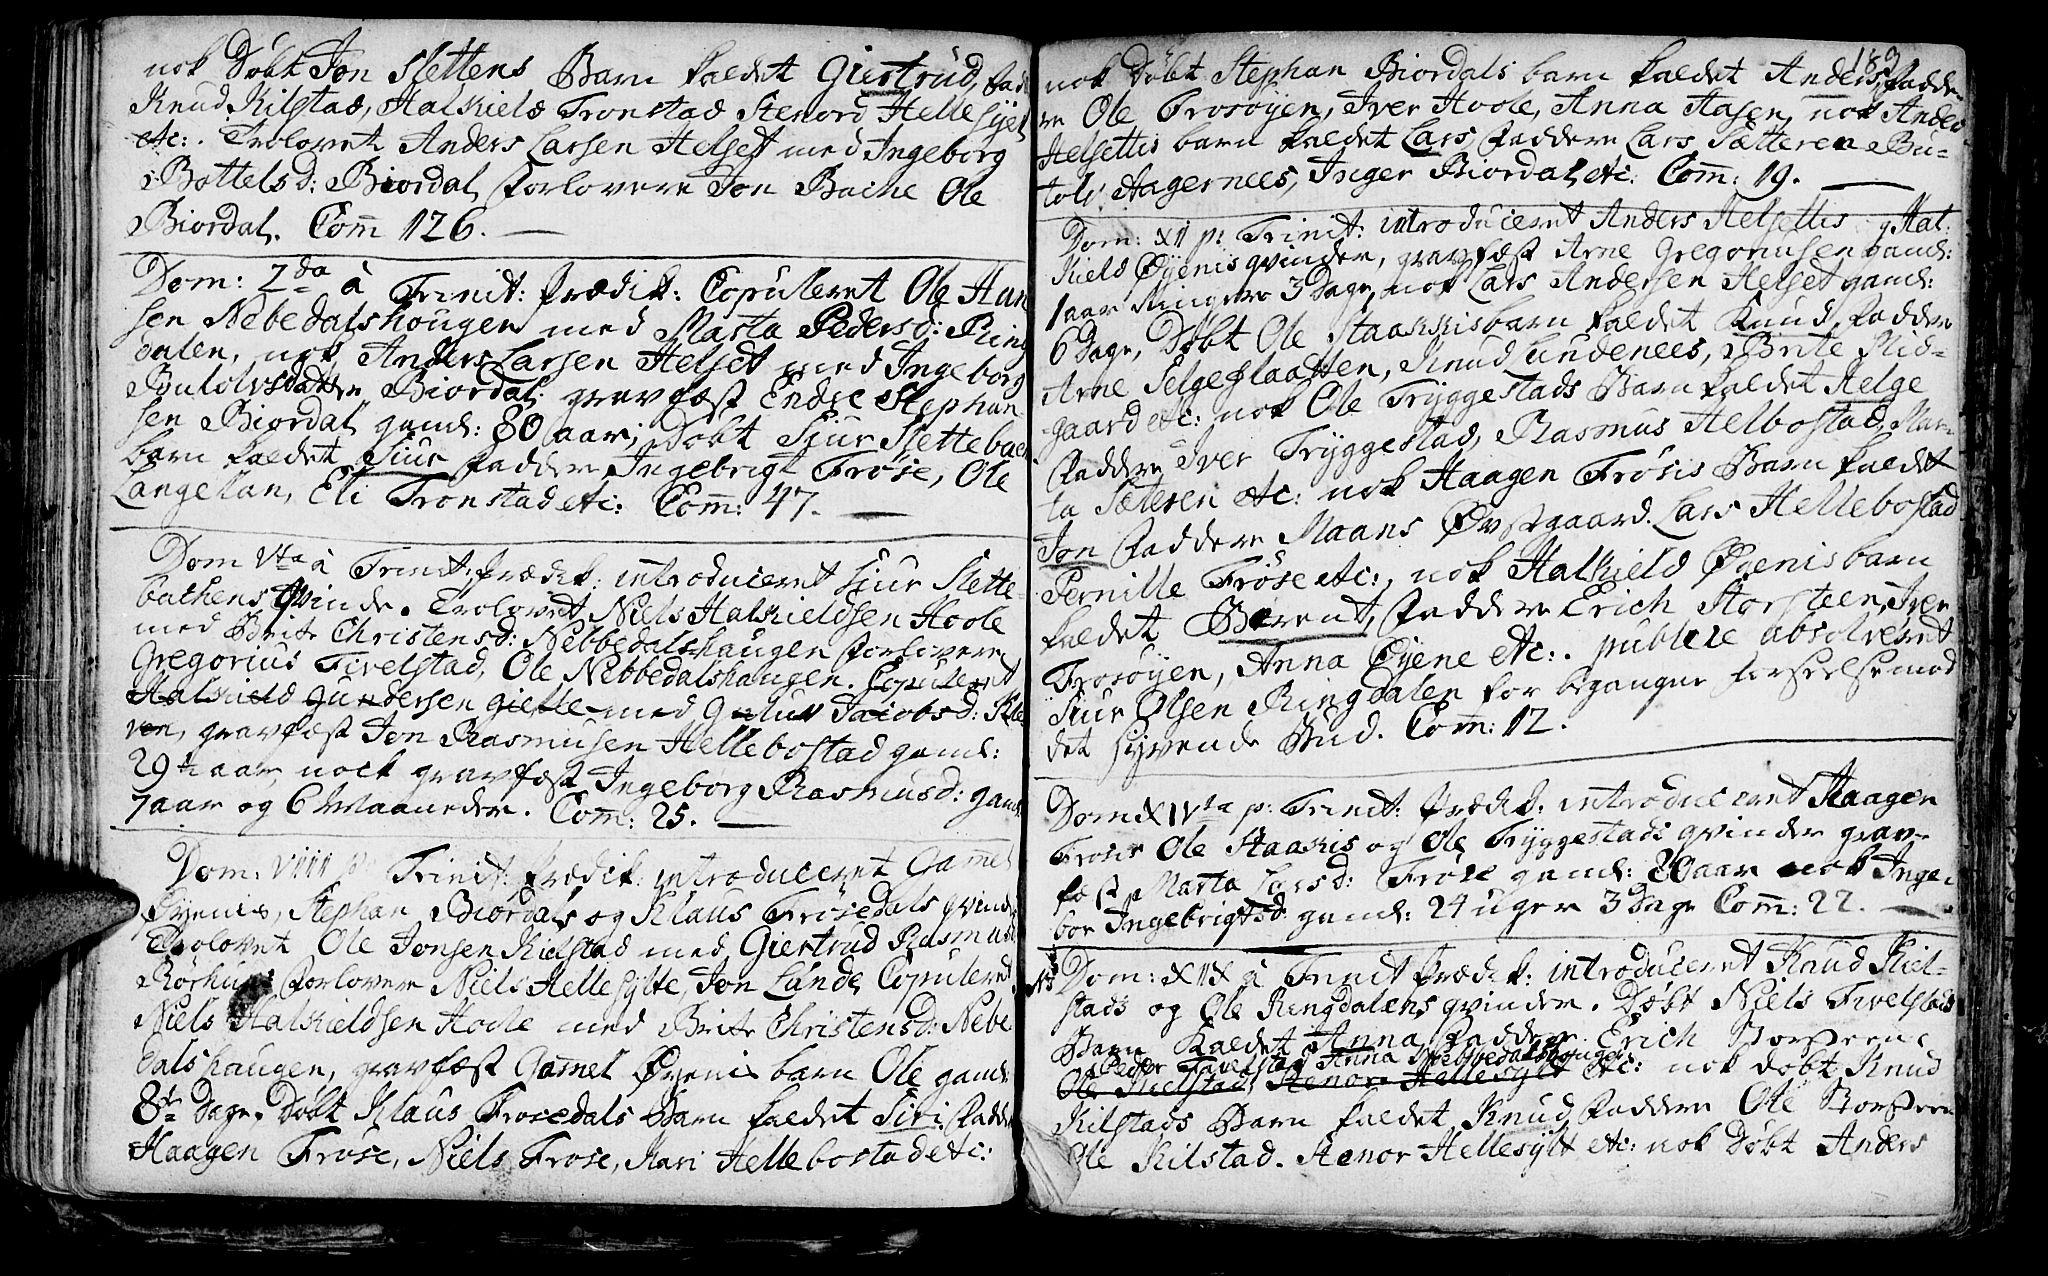 nok Døbt Jon Slettens Barn kaldet Giertrud, fadd
Knud Kilstad, Halkield Tronstad Stenord Hellesyet
etc: . Trolovet Anders Larsen Helset med Ingeborg
Bottelsd: Biordal, forlovere Jon Bache Ole
Biordal. Com̄ 126. —
Dom: 2da à Trinit: prædik: Copuleret Ole Han
sen Nebedalshougen med Marta Pedersd: Ring
dalen, nok Anders Larsen Helset med Ingeborg
Butolvsdatter Biordal: gravfæst Endre Stephan-
sen Biordal gaml: 80 aar; Døbt Siur Slettebach
barn kaldet Siur faddere Ingebrigt Frøse, Ole
Langeland, Eli Tronstad etc: Com̄: 47. —
Dom Vta à Trinit: prædik: introduceret Siur Slette-
bachens Qvinde. Trolovet Niels Halkieldsen Hoole
med Brite Christensd: Nebbedalshaugen forlovere
Gregorius Tivelstad, Ole Nebbedalshaugen. Copuleret
Halkield Gundersen Gielle med Gulur Jacobsd: Kle
ven, gravfæst Jon Rasmusen Hellebostad gaml:
29 aar, nock gravfæst Ingeborg Rasmusd: gaml
7 aar og 6 Maaneder. Com̄: 25. —
Dom: VIIII p: Trinit: prædik: introduceret Gamel
Øyenis, Stephan Biordals og Klaus Frøsedals qvinder
Trolovet Ole Jonsen Kielstad med Giertrud Rasmusd
Rørhuus forlovere Niels Hellesylte, Jon Lande, Copuleret
Niels Halkieldsen Hoole med Brite Christensd: Nebe
dalshaugen, gravfæst Gamel Øyenis barn Ole gaml:
8te Dage. Døbt Klaus Frosedals Barn kaldet Siri fadder
Haagen Frøse, Niels Frøse, Kari Hellebostad etc:
183
nok Døbt Stephan Biordals barn kaldet Anders, fadde-
re Ole Frosøyen, Iver Hoole, Anna Aasen, nok Anders
Helsettis barn kaldet Lars, faddere Lars Sætteren Bu-
tolv Aagernees, Inger Biordal, etc: Com̄: 19. —
Dom: XII p: Trinit: introduceret Anders Helsettis og Hal-
kield Øyenis qvinder, gravfæst Arne Gregoriusen gaml:
1 aar ringere 3 Dage, nok Lars Andersen Helset gaml:
6 Dage, Døbt Ole Staakkis barn kaldet Knud, faddere
Arne Selgeslaatten, Knud Lundenees, Brite Mid-
gaard etc: nok Ole Tryggestads Barn kaldet Helge
faddere Iver Tryggestad, Rasmus Helbostad, Mar-
ta Sæteren etc: nok Haagen Frøsis Barn kaldet
Jon faddere Maans Øvstgaard. Lars Hellebostad
Pernille Frøse etc:, nok Halkield Øyenis barn
kaldet Berent, faddere Erich Storsteen, Iver
Frosøyen, Anna Øyene etc: . publice absolveret
Siur Olsen Ringdalen for begangne forseelse mod
det syvende Bud. Com̄: 12.
Dom XIVta p: Trinit: prædik: introduceret Haagen
Frøsis Ole Staakis og Ole Tryggestads qvinder grav-
fæst Marta Larsd: Frøse gaml: 80 aar nok Inge-
bor Ingebrigtsd: gaml: 24 uger 3 Dage Com̄: 22. —
Dom: XIX à Trinit prædik: introduceret Knud Kiel-
stads og Ole Ringdalens qvinder. Døbt Niels Tivelstads
Barn Kaldet Anna, Faddere Erich Storsteen,
Peder Tivelstad Anna Nebbedalshougen
Ole Kielstad, Stenor Hellesylt etc: nok døbt Knud
Kilstads Barn kaldet Knud, faddere Ole Storsteen
Ole Kilstad. Stenor Hellesylt etc: nok Døbt Anders